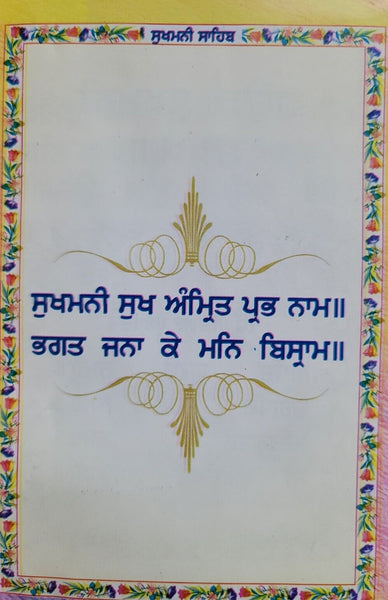 ਸੁਖਮਨੀ ਸਾਹਿਬ
ਸੁਖਮਨੀ ਸੁਖ ਅੰਮ੍ਰਿਤ ਪ੍ਰਭ ਨਾਮ॥
ਭਗਤ ਜਨਾ ਕੇ ਮਨਿ ਬਿਸ੍ਰਾਮ॥